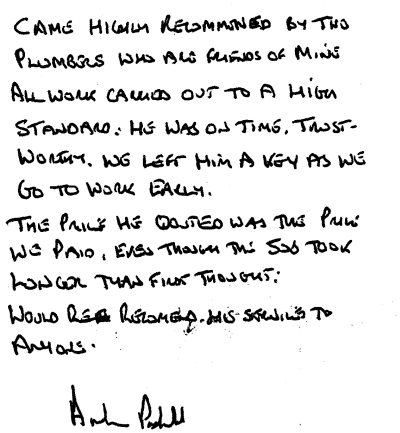 CAME HIGHLY RECOMMENDED BY TWO
PLUMBERS WHO ARE FRIENDS OF MINE
ALL WORK CARRIED OUT TO A HIGH
STANDARD. HE WAS ON TIME, TRUST-
WORTHY. WE LEFT HIM A KEY AS WE
GO TO WORK EARLY.
THE PRICE HE QUOTED WAS THE PRICE
WE PAID, EVEN THOUGH THE JOB TOOK
LONGER THAN FIRST THOUGHT.
WOULD RECOMEND HIS SERVICE TO
ANYONE.